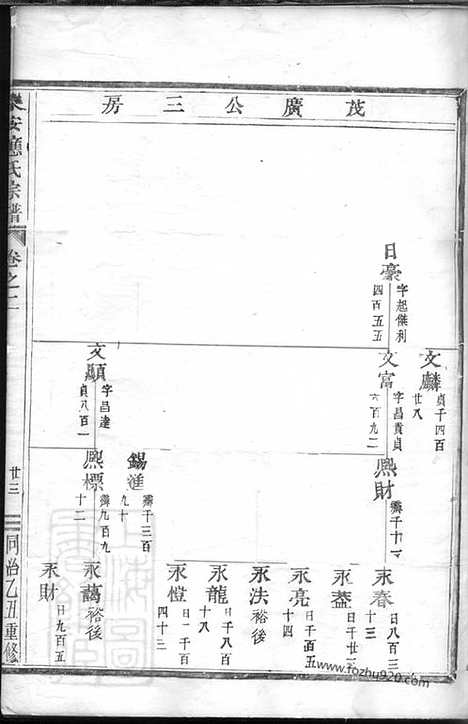 茂廣公三房
日豪
字起傑利
四百五五
文麟
貞千四百
廿八
文富
字昌貴貞
六百九二
文顯
字昌達
貞八百一
熙財
霽千十一
錫進
霽千三百
九十
熙標
霽九百九
十二
永春
日八百三
十三
永盖
日千廿三
永亮
日千四
十四
永法
裕後
永龍
日千八百
十八
永愷
日一千百
四十三
永藹
裕後
永財
日九百五
樂安應氏宗譜
卷之二
廿三
同治乙丑重修
www.fozhu920.com